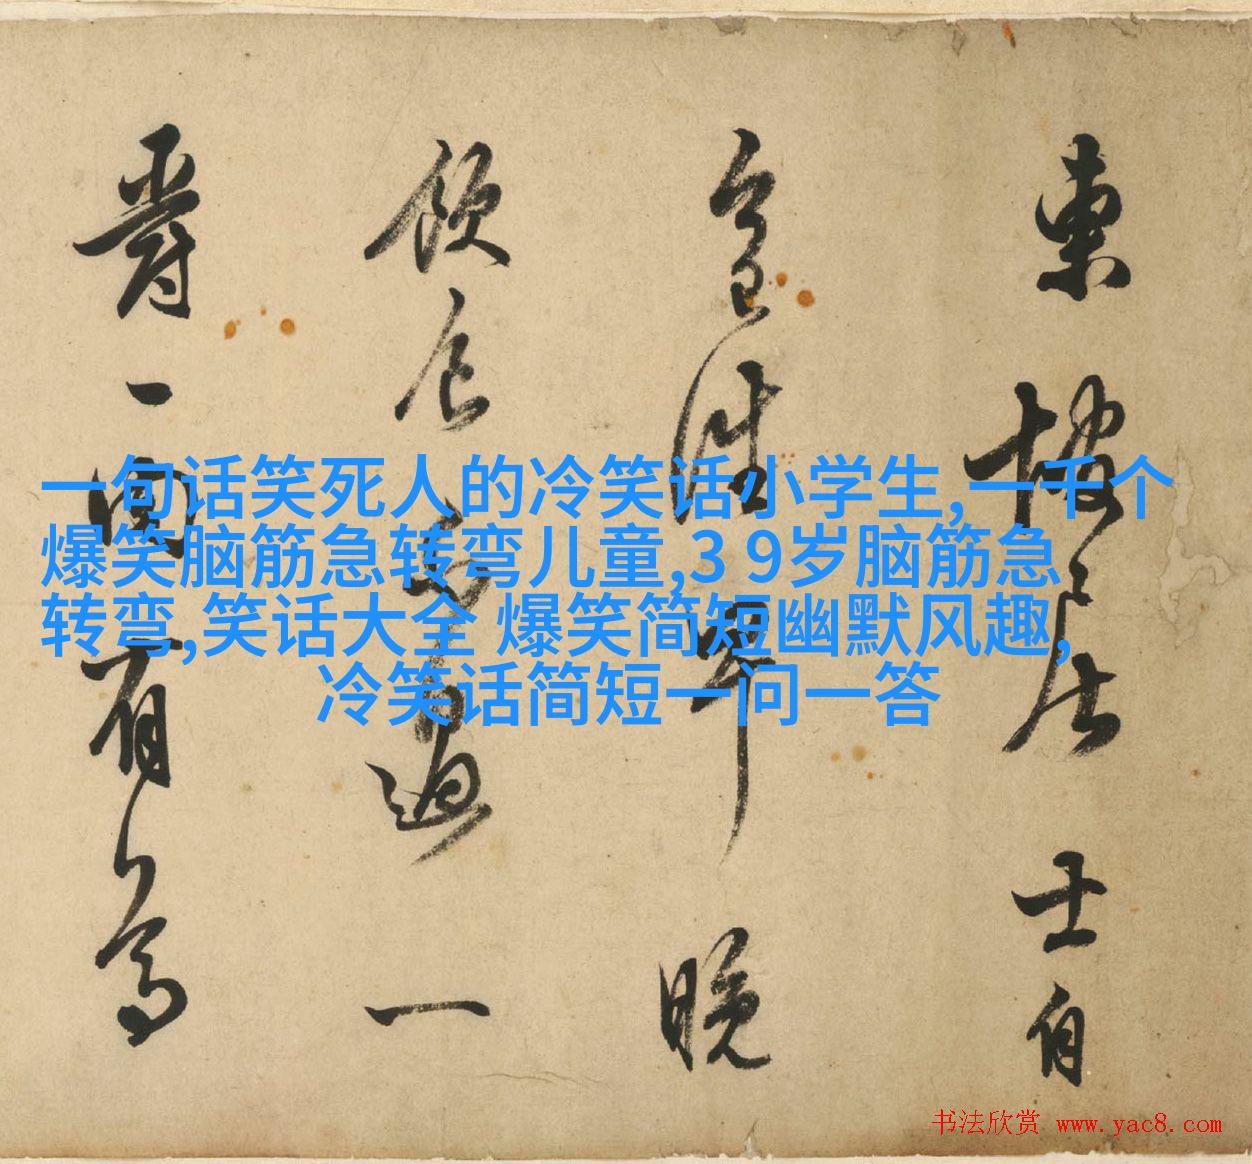 一句话笑死人的冷笑话小学生,一千个
爆笑脑筋急转弯儿童,3 9岁脑筋急
转弯,笑话大全 爆笑简短幽默风趣,
冷笑话简短一问一答
東坡居士自
今日往早晚
飲食不過一
爵一肉有
书法欣赏 www.yac8.com